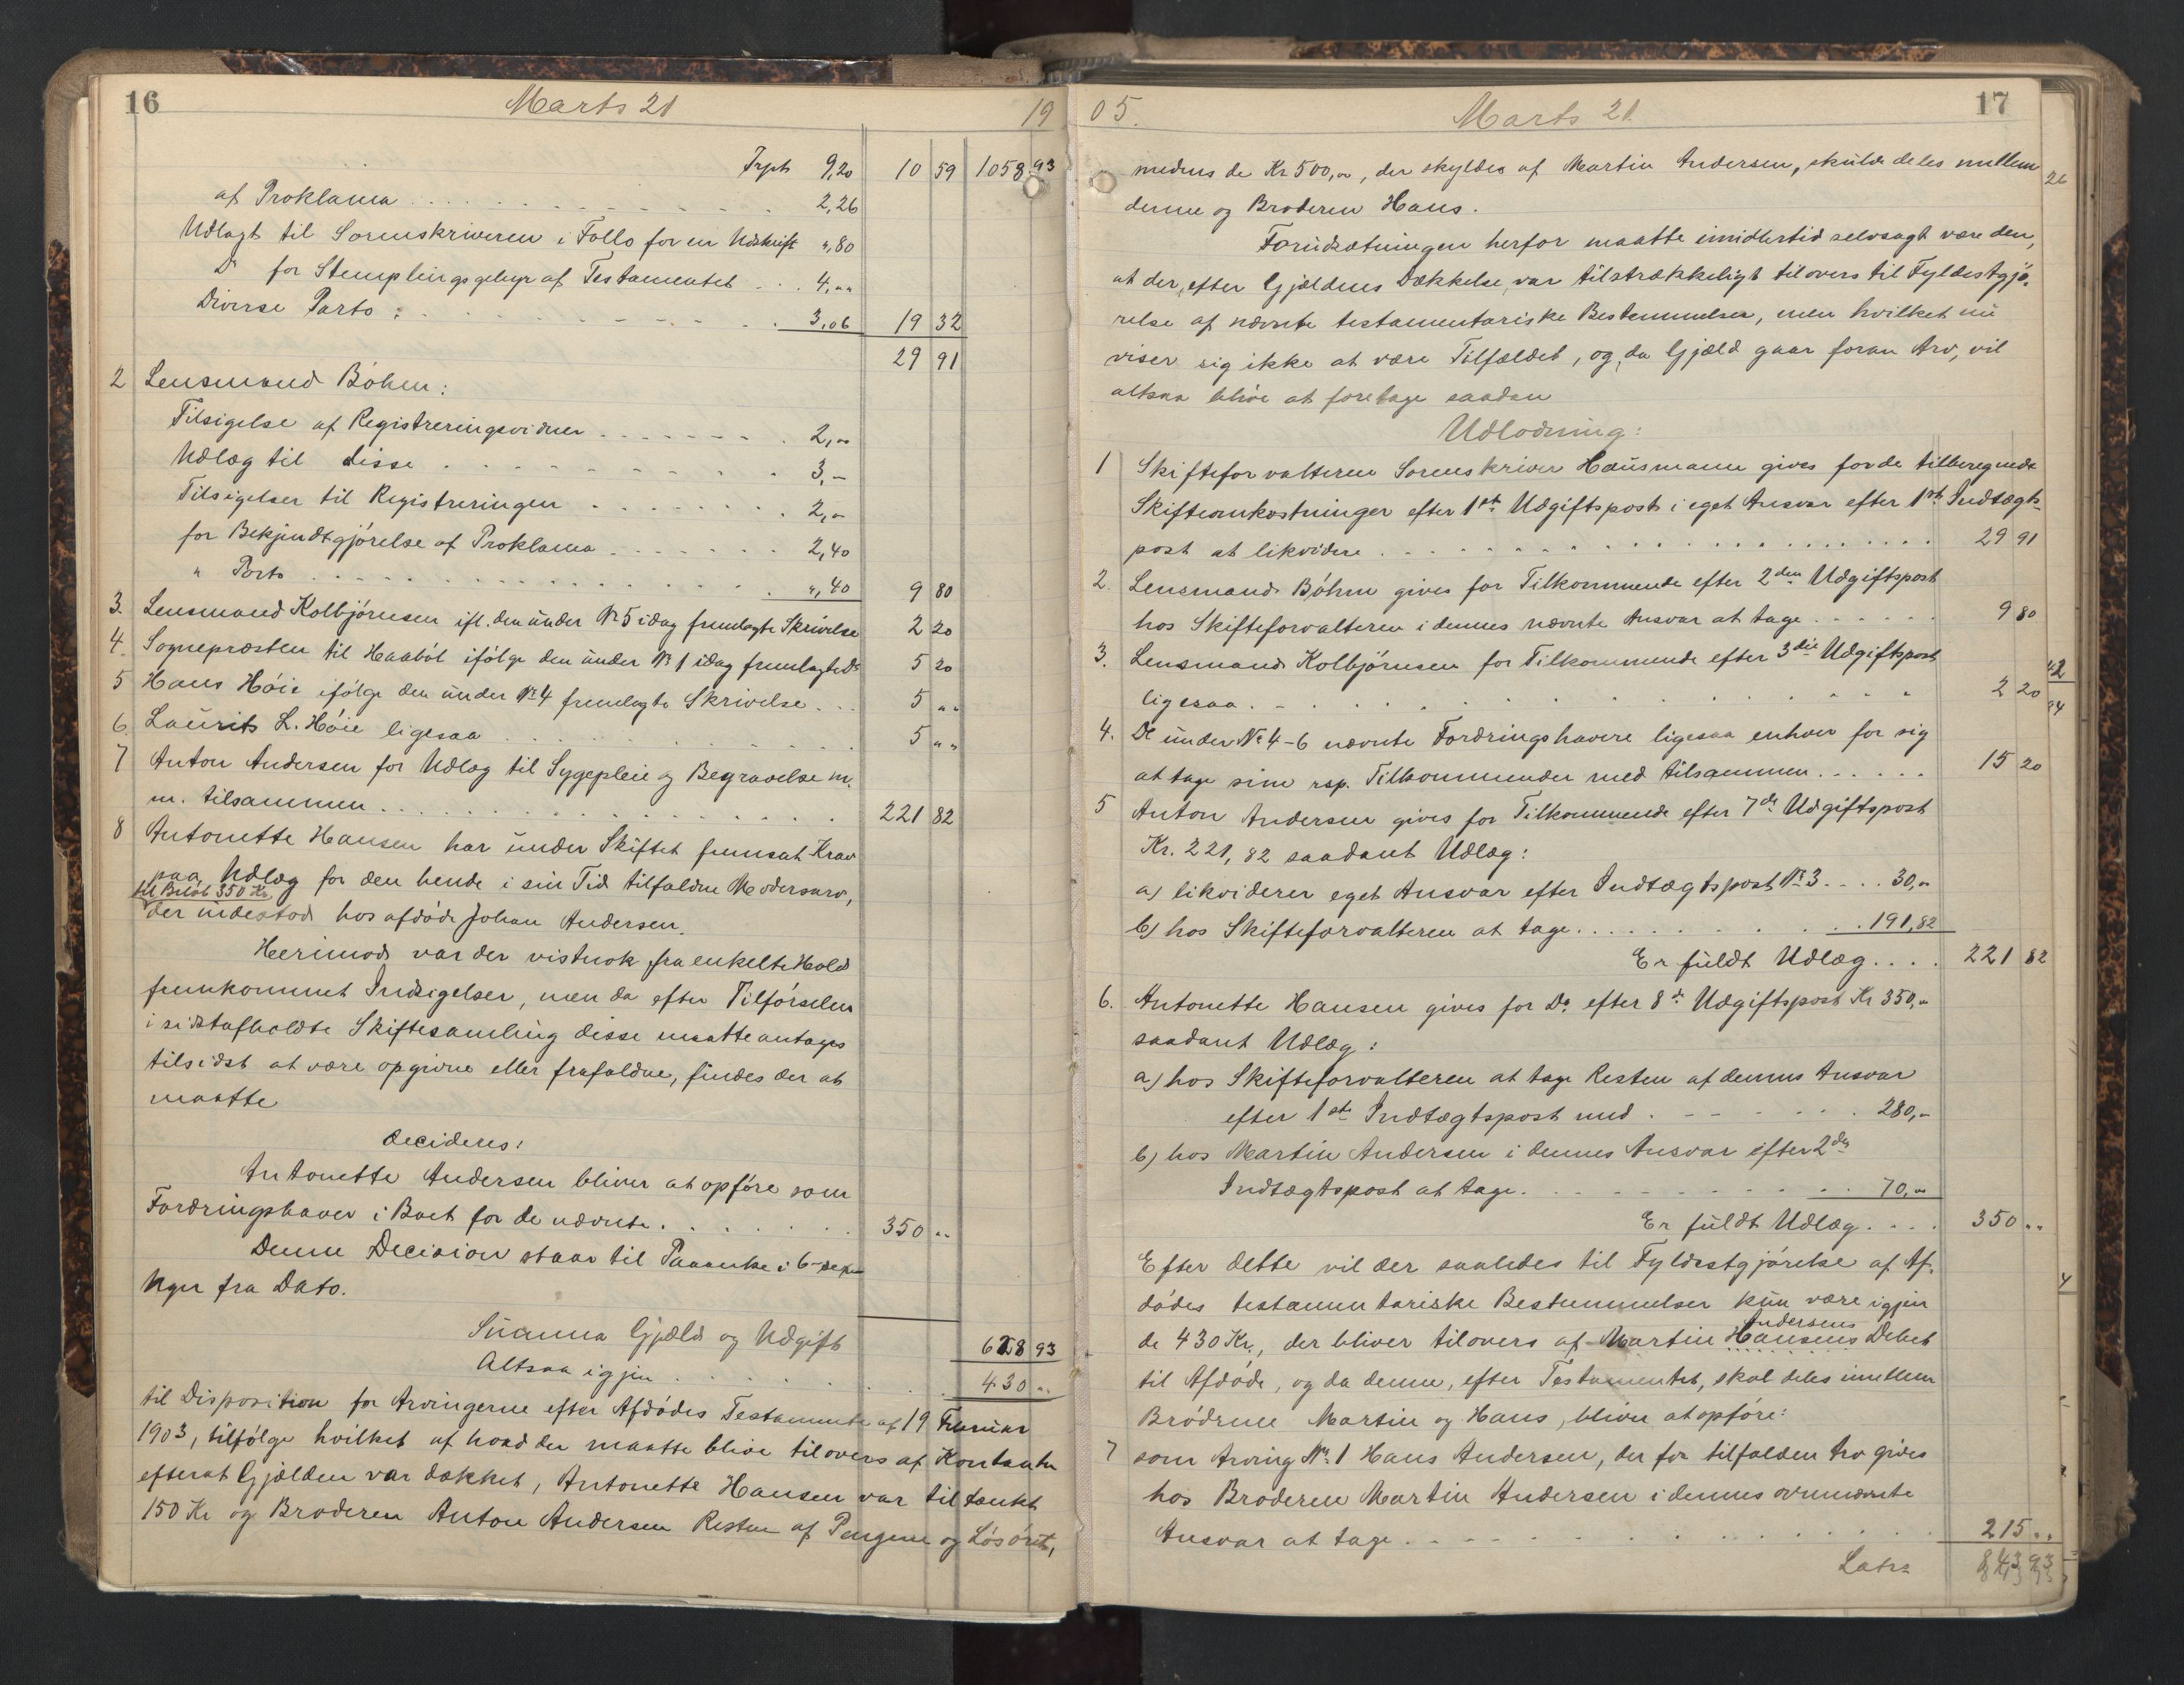 16 Marts 21 19
Trpt 9,20 10 59 1058,93
af Proklama 2,26
Udlagt til Sorenskriveren i Follo for en Udskrift ",80
Do for Stemplingsgebyr af Testamentet . . . 4,""
Diverse Porto: 3,06 19 32
29 91
2 Lensmand Böhm:
Tilsigelse af Registreringsvidner . . . . . . . 2,""
Udlæg til disse . . . . . . . . . 3,"
Tilsigelser til Registreringen . . . . . . . . 2,"
for Bekjendtgjörelse af Proklama . . . . . . . 2,40
" Porto . . . . . . . . . . . ",40 9 80
3. Lensmand Kolbjörnsen ifl. den under No 5 idag fremlagte Skrivelse 2 20
4. Sognepræsten til Haaböl ifölge den under No 1 idag fremlagte Do 5 20
5 Hans Höie ifölge den under No 4 fremlagte Skrivelse . . . 5 ""
6 Laurits L. Höie ligesaa . . . . . . . . . 5 ""
7 Anton Andersen for Udlæg til Sygepleie og Begravelse m.
m. tilsammen . . . . . . . . . . . 221 82
8 Antonette Hansen har under Skiftet fremsat Krav
paa Udlæg for den hende i sin Tid tilfaldne Modersarv,
til Beløb 350 Kr,
der indestod hos afdöde Johan Andersen.
Herimod var der vistnok fra enkelte Hold
fremkommet Indsigelser, men da efter Tilförselen
i sidstafholdte Skiftesamling disse maatte antages
tilsidst at være opgivne eller frafaldne, findes der at
maatte
decideres:
Antonette Andersen bliver at opföre som
Fordringshaver i Boet for de nævnte . . . . . . . 350 ""
Denne Decision staar til Paaanke i 6 - sex
Uger fra Dato.
Summa Gjæld og Udgift 628 93
Altsaa igjen . . . . . . . . 430 ""
til Disposition for Arvingerne efter Afdödes Testamente af 19 Februar
1903, tilfölge hvilket af hvad der maatte blive tilovers af Kontanter
efterat Gjælden var dækket, Antonette Hansen var tiltænkt
150 Kr og Broderen Anton Andersen Resten af Pengene og Lösöret,
05. Marts 21. 17
medens de Kr 500,"", der skyldes af Martin Andersen, skulde deles mellem
denne og Broderen Hans.
Forudsætningen herfor maatte imidlertid selvsagt være den,
at der, efter Gjældens Dækkelse, var tilstrækkeligt tilovers til Fyldestgjö-
relse af nævnte testamentariske Bestemmelser, men hvilket nu
viser sig ikke at være Tilfældet, og, da Gjæld gaar foran Arv, vil
altsaa blive at foretage saadan
Udlodning:
1 Skifteforvalteren Sorenskriver Hausmann gives for de tilberegnede
Skifteomkostninger efter 1ste Udgiftspost i eget Ansvar efter 1ste Indtægts-
post at likvidere . . . . . . . . . . . 29 91
2. Lensmand Böhm gives for Tilkommende efter 2den Udgiftspost
hos Skifteforvalteren i dennes nævnte Ansvar at tage . . . . . . 9 80
3. Lensmand Kolbjörnsen for Tilkommende efter 3die Udgiftspost
ligesaa . . . . . . . . . . . 2 20
4. De under No 4-6 nævnte Fordringshavere ligesaa enhver for sig
at tage sine resp. Tilkommender med tilsammen . . . . . . 15 20
5 Anton Andersen gives for Tilkommende efter 7de Udgiftspost
Kr. 221,82 saadant Udlæg:
a) likviderer eget Ansvar efter Indtægtspost No 3 . . . . 30,"
b) hos Skifteforvalteren at tage . . . . . . . . 191,82
Er fuldt Udlæg . . . . 221 82
6. Antonette Hansen gives for Do efter 8de Udgiftspost Kr 350,"
saadant Udlæg:
a) hos Skifteforvalteren at tage Resten af dennes Ansvar
efter 1ste Indtægtspost med . . . . . . . 280,"
b) hos Martin Andersen i dennes Ansvar efter 2den
Indtægtspost at tage . . . . . . . . . 70,""
Er fuldt Udlæg . . . . 350 ""
Efter dette vil der saaledes til Fyldestgjörelse af Af-
dödes testamentariske Bestemmelser kun være igjen
Andersens
de 430 Kr., der bliver tilovers af Martin Hansens Debet
til Afdöde, og da denne, efter Testamentet, skal deles imellem
Brödrene Martin og Hans, bliver at opföre:
7 som Arving No 1 Hans Andersen, der for tilfalden Arv gives
hos Broderen Martin Andersen i dennes ovennævnte
Ansvar at tage . . . . . . . . . . 215 ""
Latus 843 93